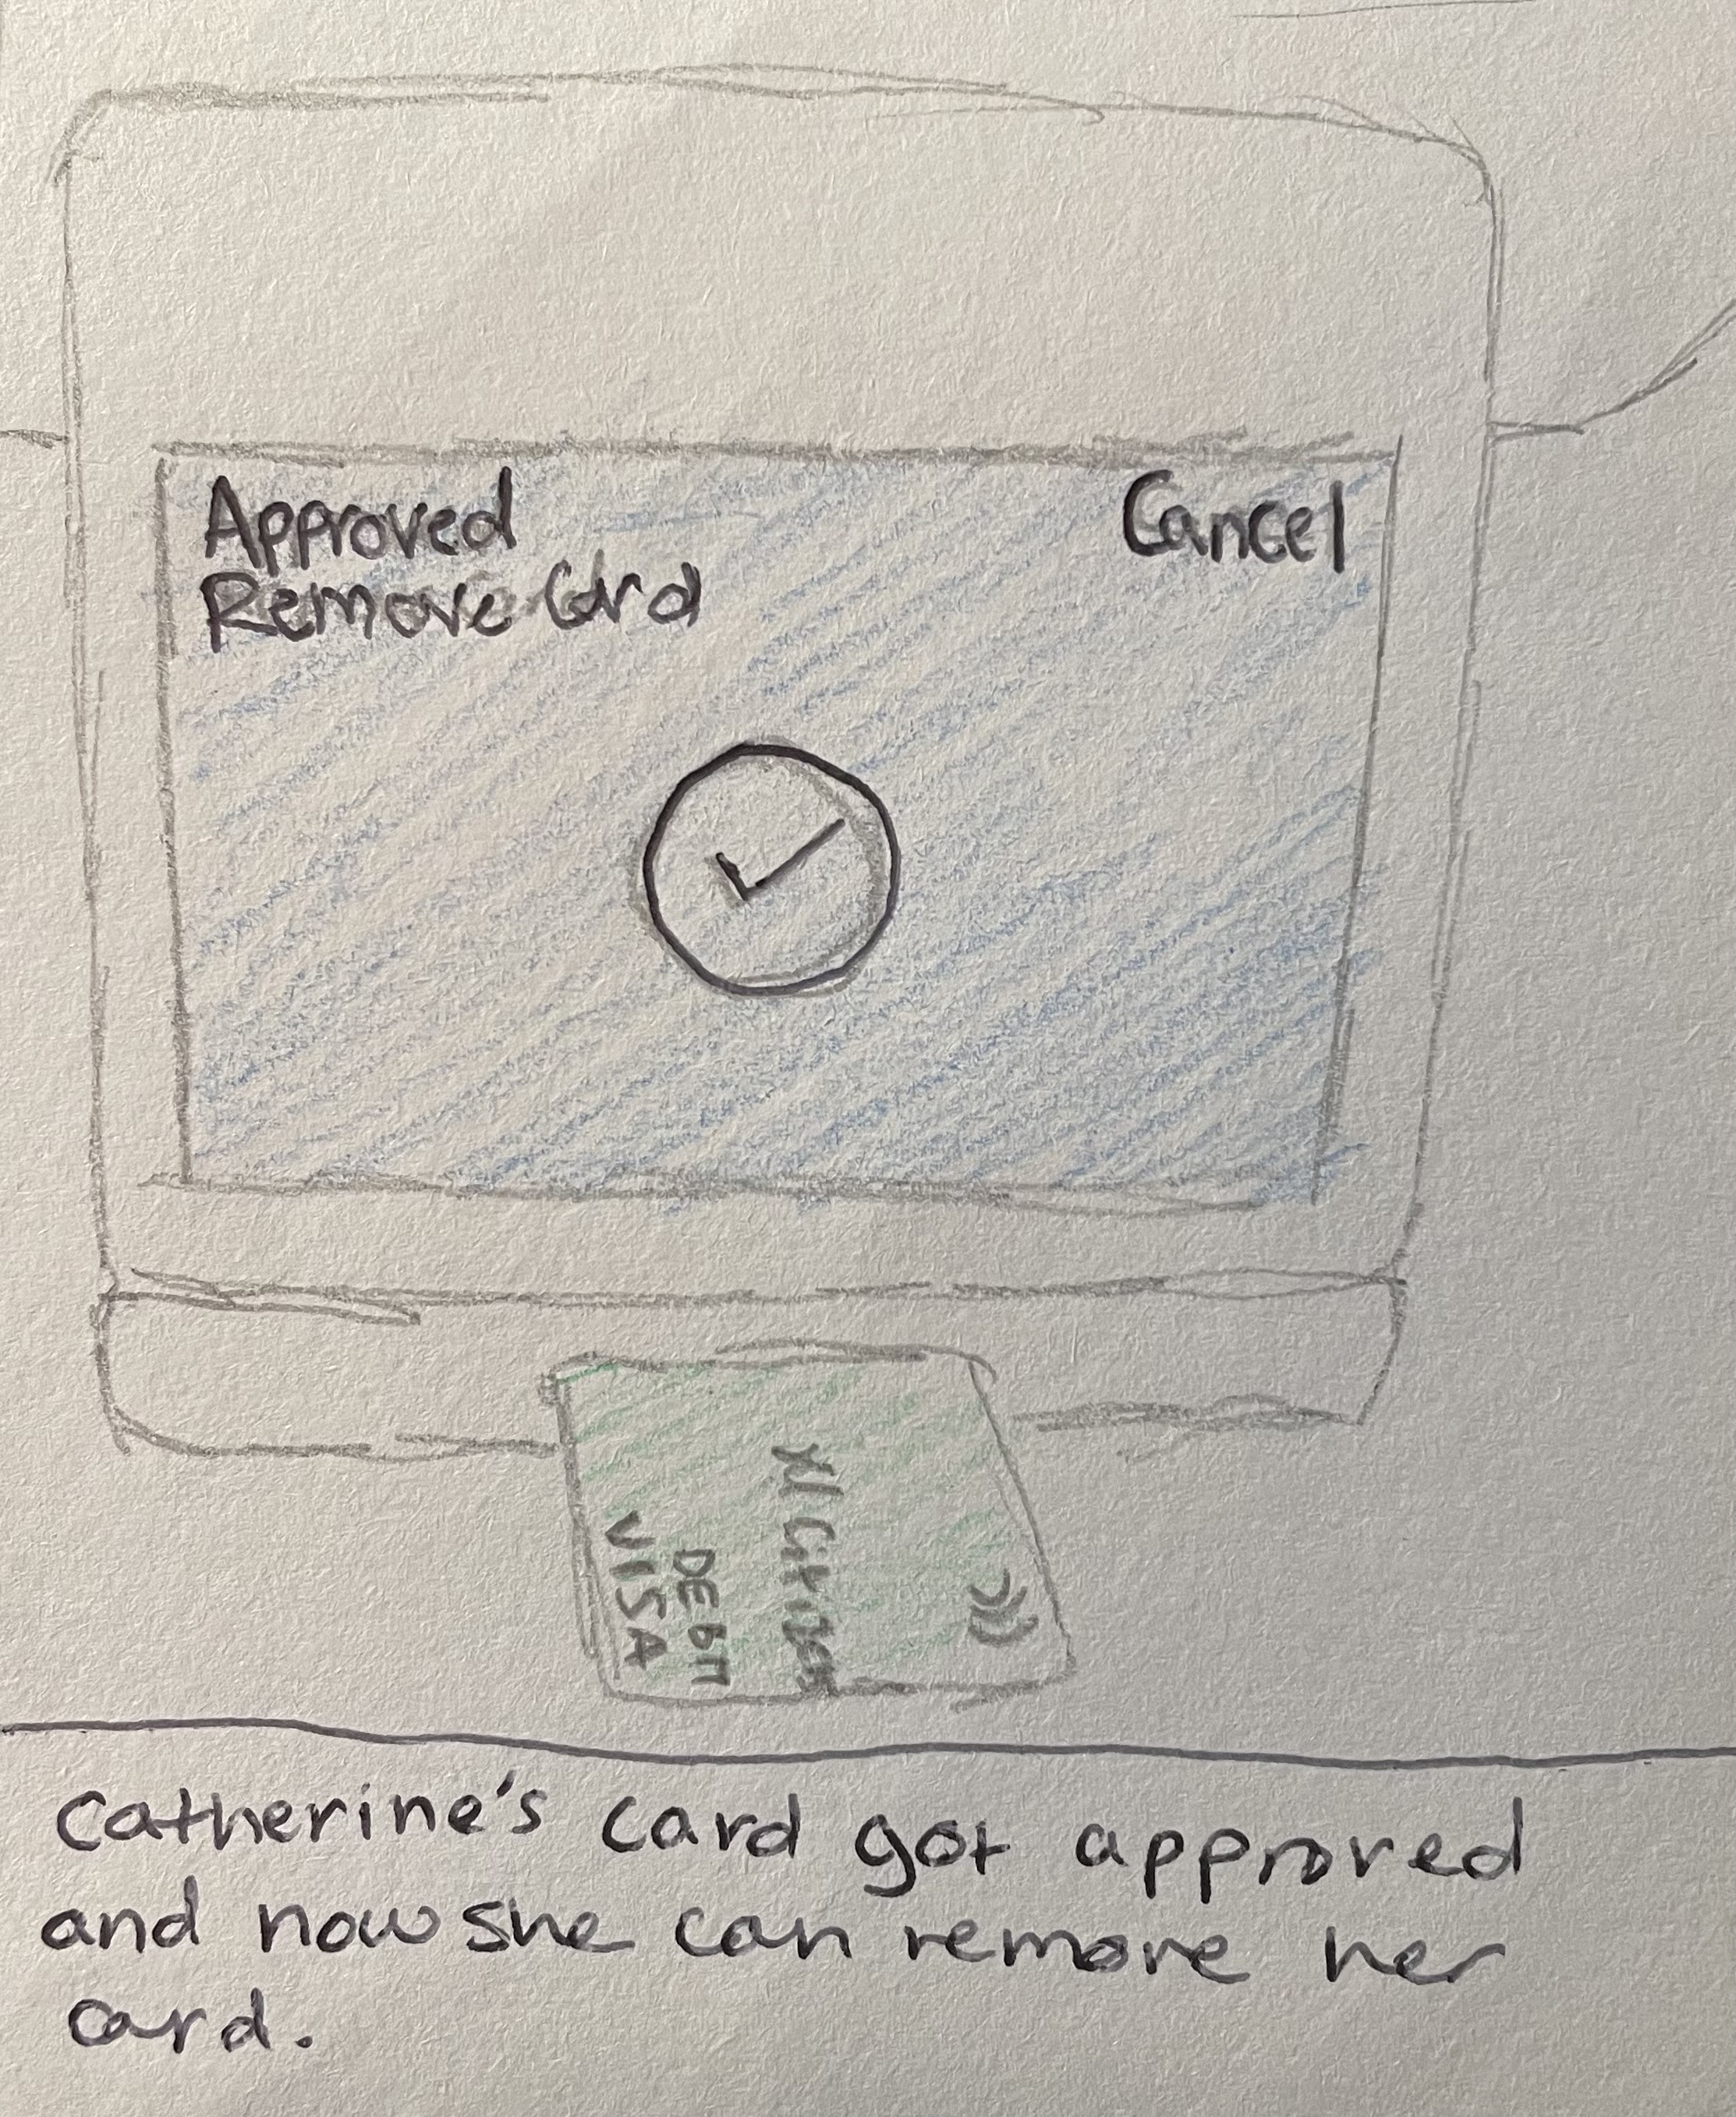 Approved
Cancel
Remove Card
Citizens
DEBIT
VISA
Catherine's card got approved
and now she can remove her
card.